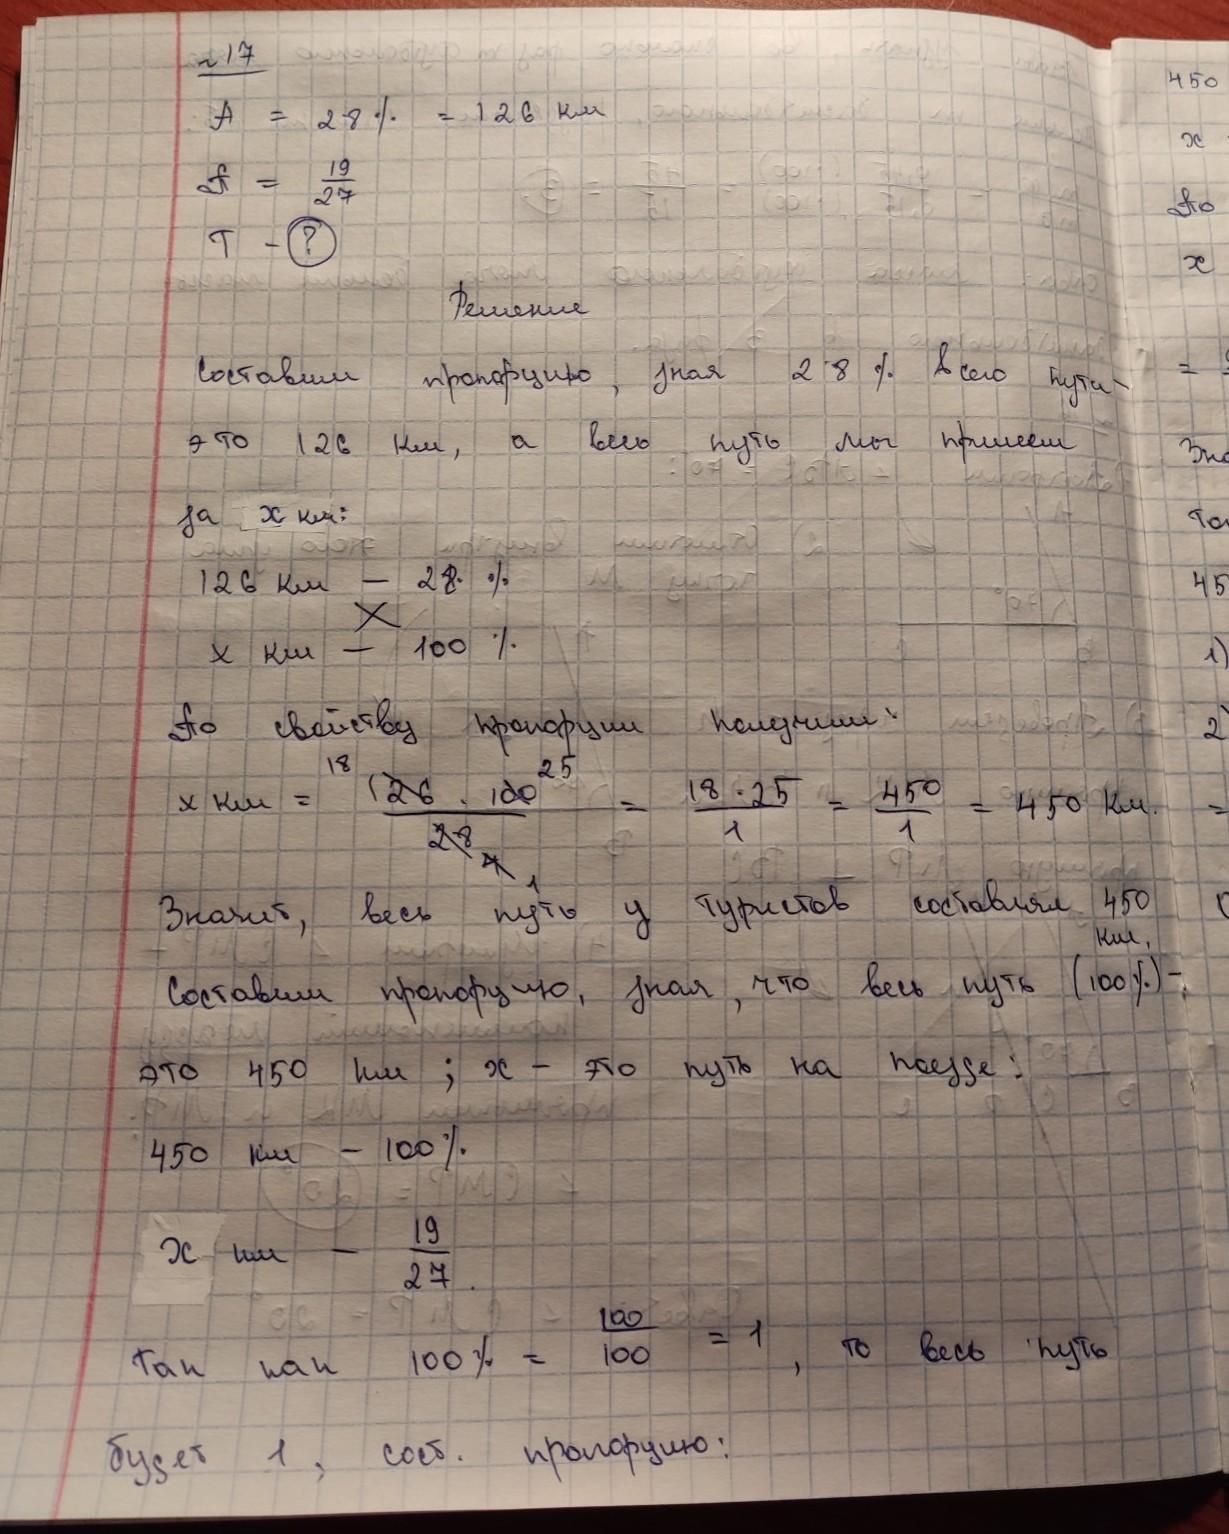 №17
А = 28% = 126 км
П = 19/27
Т - ?
Решение
Составим пропорцию, зная 28% всего пути -
это 126 км, а весь путь мы примем
за х км:
126 км — 28 %
х км — 100 %
По свойству пропорции получим:
х км = 126 · 100 / 28 = 18 · 25 / 1 = 450 / 1 = 450 км.
18 25 4 1
Значит, весь путь у туристов составлял 450
км.
Составим пропорцию, зная, что весь путь (100%) -
это 450 км ; х - это путь на поезде:
450 км - 100%
х км - 19/27.
Так как 100% = 100/100 = 1, то весь путь
будет 1, сост. пропорцию:
450
х
По
х
=
45
1)
2
=